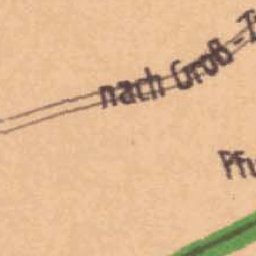 nach Groß-
Pfu